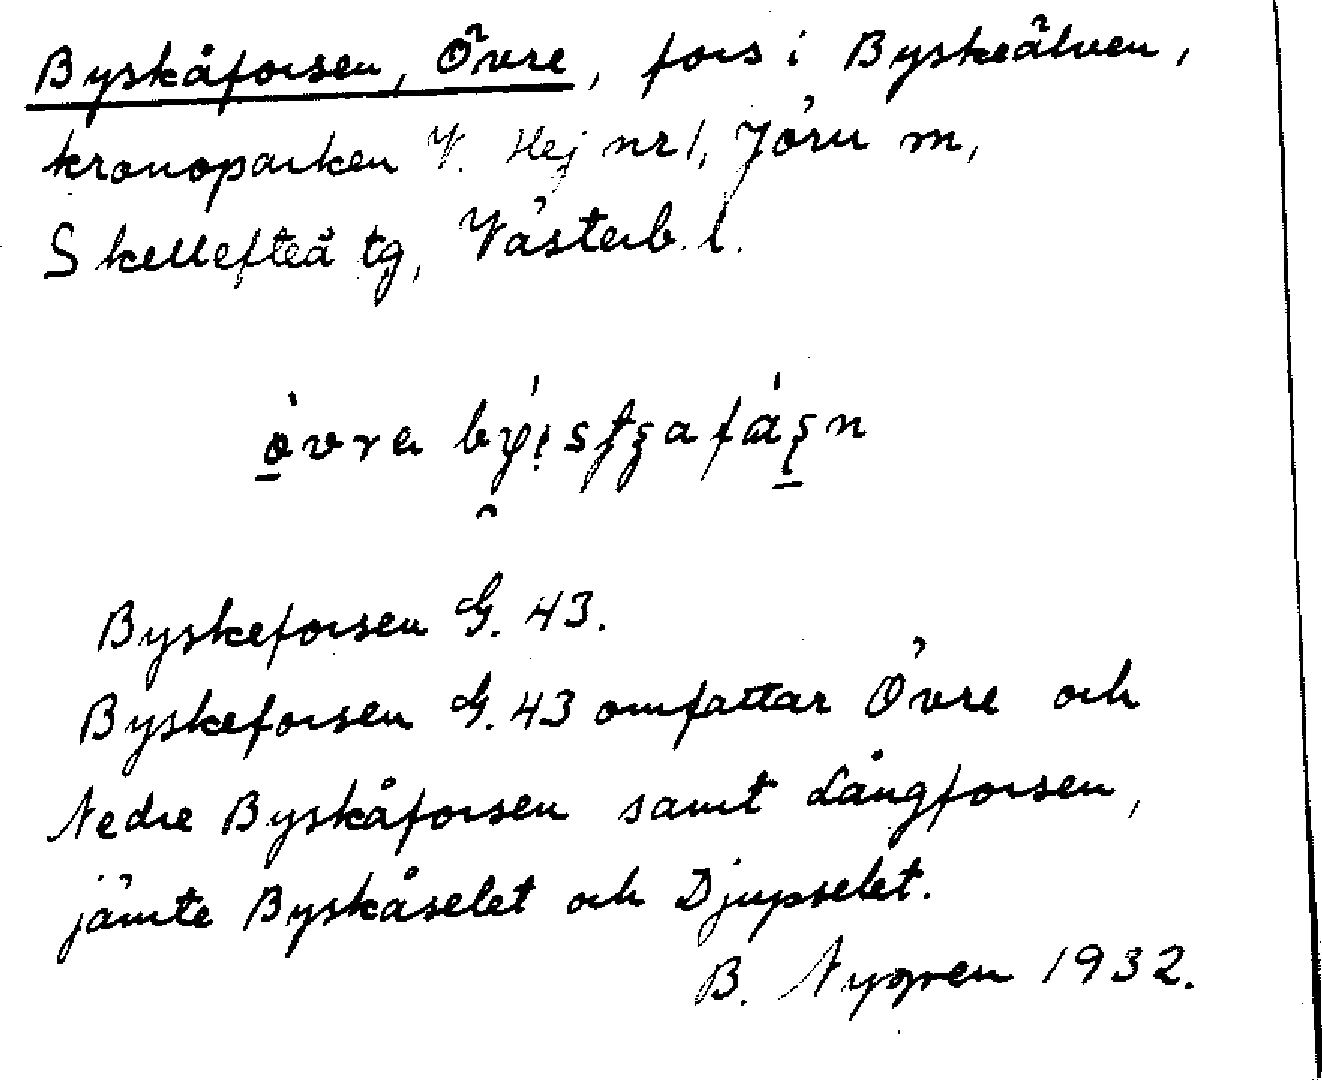 Byskåforsen, Övre, fors i Byskeälven,
kronoparken V. Hej nr 1, Jörn m,
Skellefteå tg, Västerb. l.
Byskeforsen G. 43.
Byskeforsen G. 43 omfattar Övre och
Nedre Byskåforsen samt Långforsen,
jämte Byskåselet och Djupselet.
B. Nygren 1932.